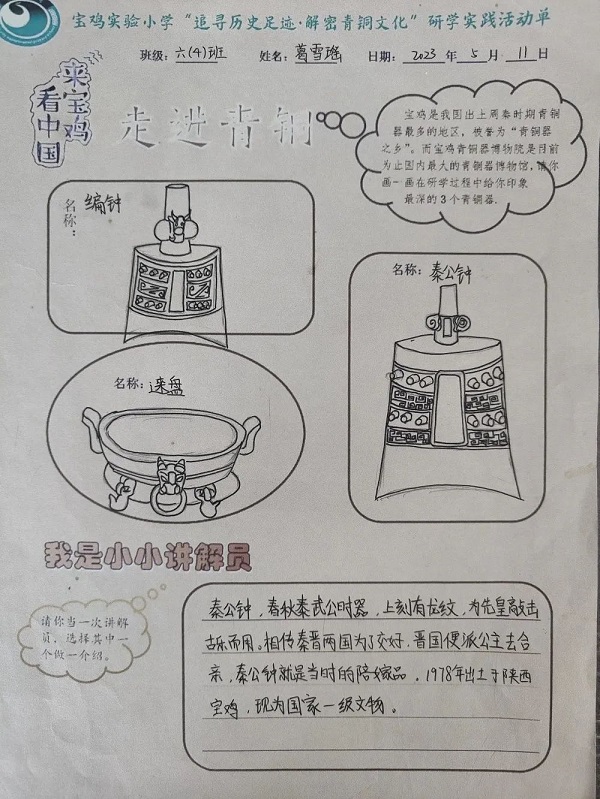 宝鸡实验小学“追寻历史足迹·解密青铜文化”研学实践活动单
班级：六(4)班 姓名：葛雪瑶 日期：2023年5月11日
来宝鸡
看中国
走进青铜
宝鸡是我国出土周秦时期青铜
器最多的地区，被誉为“青铜器
之乡”。而宝鸡青铜器博物院是目前
为止国内最大的青铜器博物馆，请你
画一画在研学过程中给你印象
最深的3个青铜器.
名称：编钟
名称：秦公钟
名称：逨盘
我是小小讲解员
请你当一次讲解
员，选择其中一
个做一介绍。
秦公钟，春秋秦武公时器，上刻有龙纹，为先皇敲击
古乐而用。相传秦晋两国为了交好，晋国便派公主去合
亲，秦公钟就是当时的陪嫁品，1978年出土于陕西
宝鸡，现为国家一级文物。